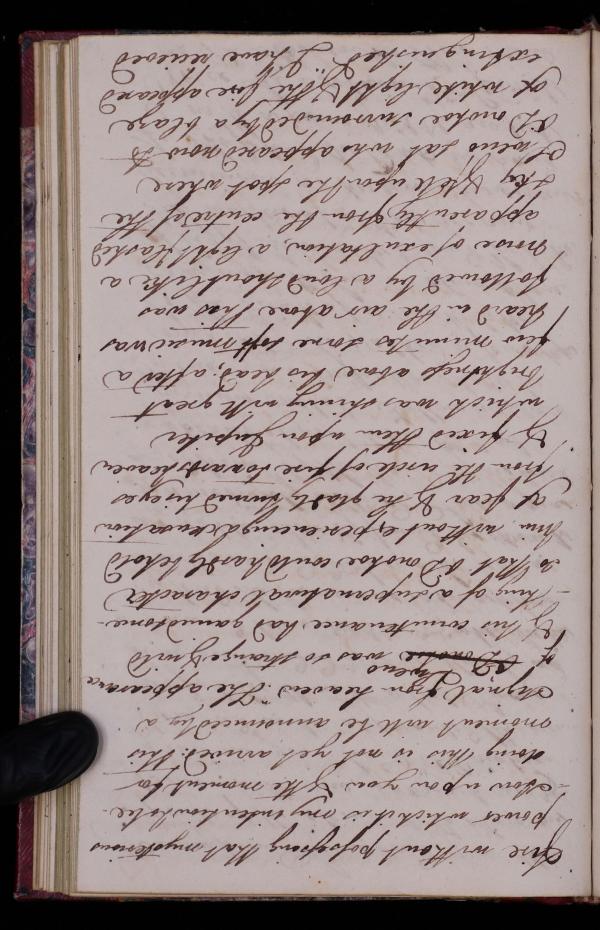 fire without possessing that mysterious
power which it is my intention to be-
-stow upon you & the moment for
doing this is not yet arrived. this
moment will be announced by a
signal from heaven". The appearance
of was so strange & wild
& his countenance had gained some-
-thing of a supernatural character
so that O'Donohoe could hardly behold
him without experiencing a sensation
of fear & he gladly turned his eyes
from the circle of fire towards heaven
& fixed them upon Jupiter
which was shining with great
brightness above his head; after a
few minutes some soft music was
heard in the air above this was
followed by a loud shout like a
noise of exultation, a light flashed
apparently from the centre of the
sky & fell upon the spot where
sat who appeared now to
O'Donohoe surrounded by a blaze
of white light & the fire appeared
extinguished. "I have recieved